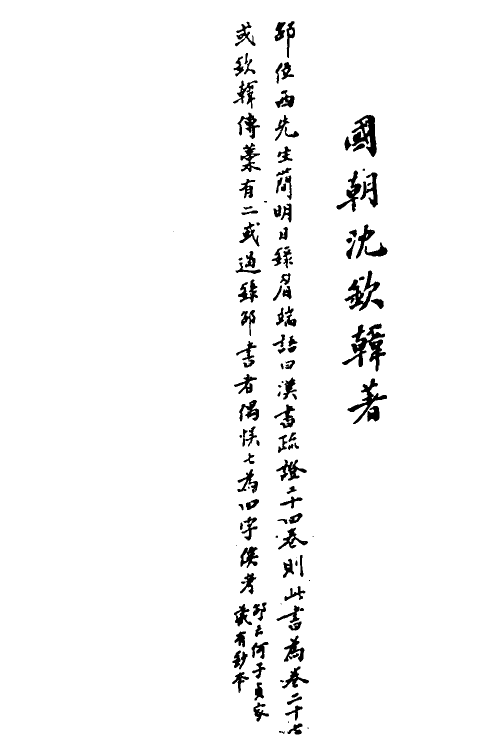 國朝沈欽韓著
邵位西先生簡明目錄眉端語曰漢書疏證二十四卷則此書爲卷二十七
或欽韓傳藁有二或過錄邵書者偶悞七為四字俟考
邵云何子貞家
藏有鈔本